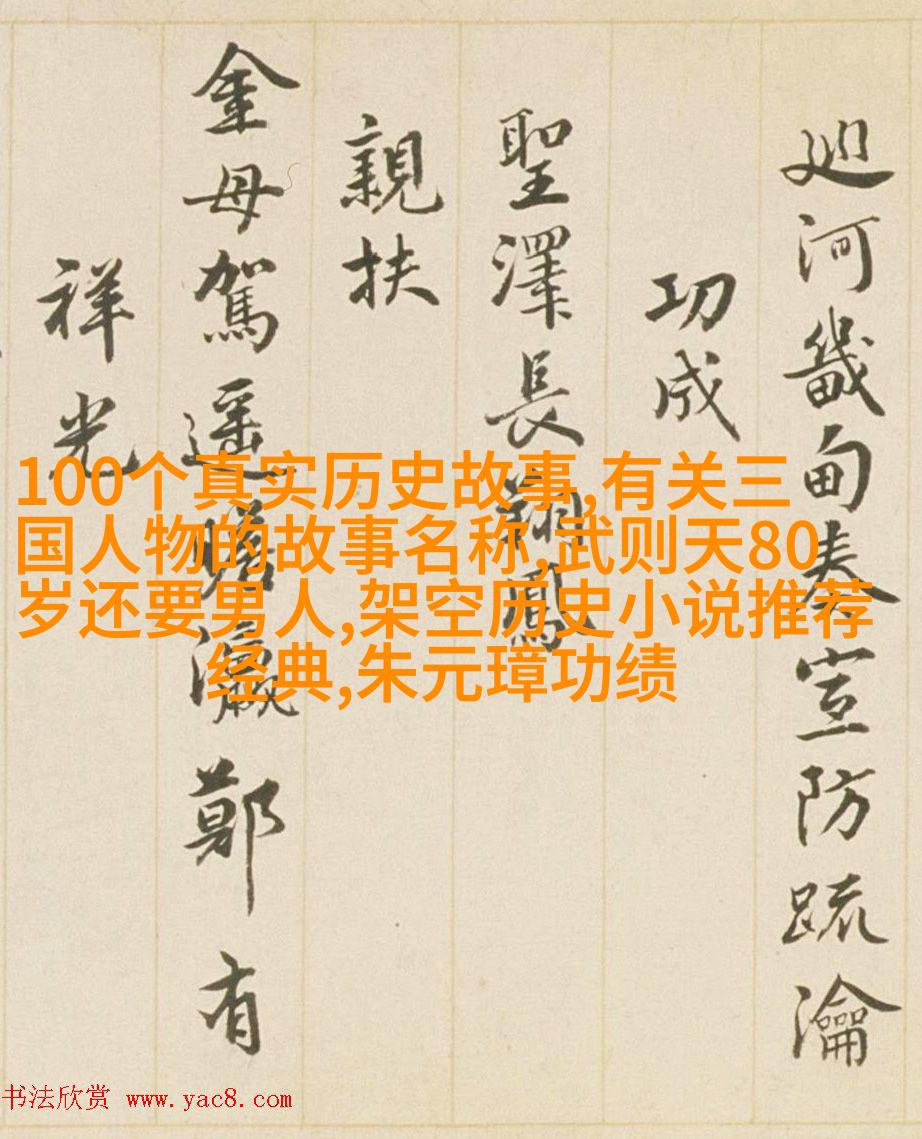 廵河畿甸奏宣防疏瀹
功成
聖澤長翔鳳
親扶
金母駕遥瞻瀛鄭有
祥光
100个真实历史故事,有关三
国人物的故事名称,武则天80
岁还要男人,架空历史小说推荐
经典,朱元璋功绩
书法欣赏 www.yac8.com